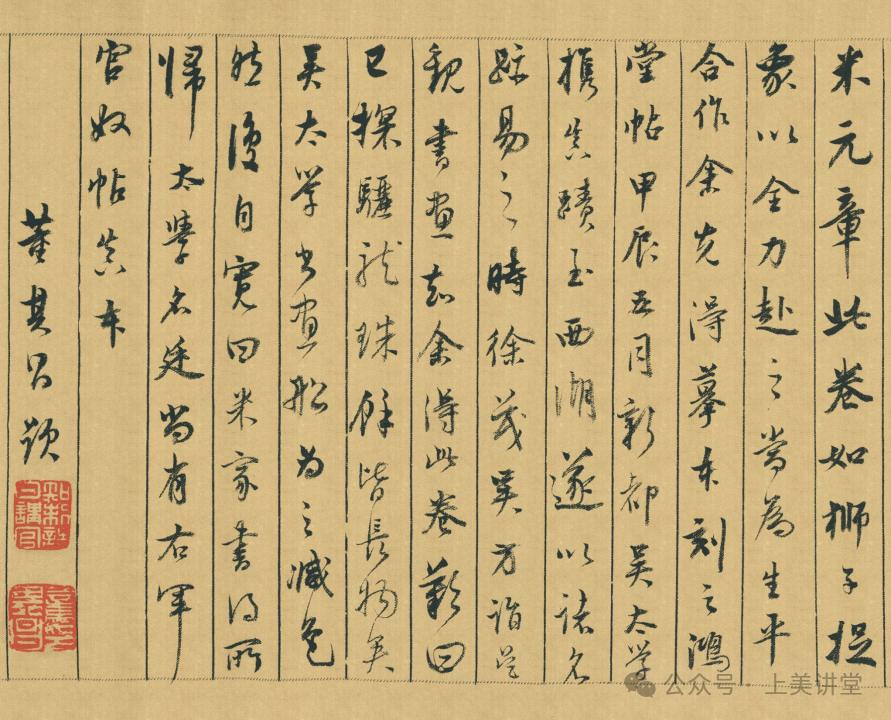 米元章此卷如獅子捉
象以全力赴之當為生平
合作余先得摹本刻之鴻
堂帖甲辰五月新都吳太學
攜真蹟至西湖遂以諸名
跡易之時徐茂吳方詣吳
觀書畫知余得此卷歎曰
已探驪龍珠餘皆長物矣
吳太學書畫船為之減色
然後自寬曰米家書得所
歸太學名廷尚有右軍
官奴帖真本
董其昌題
知制誥日講官
公众号·上美讲堂